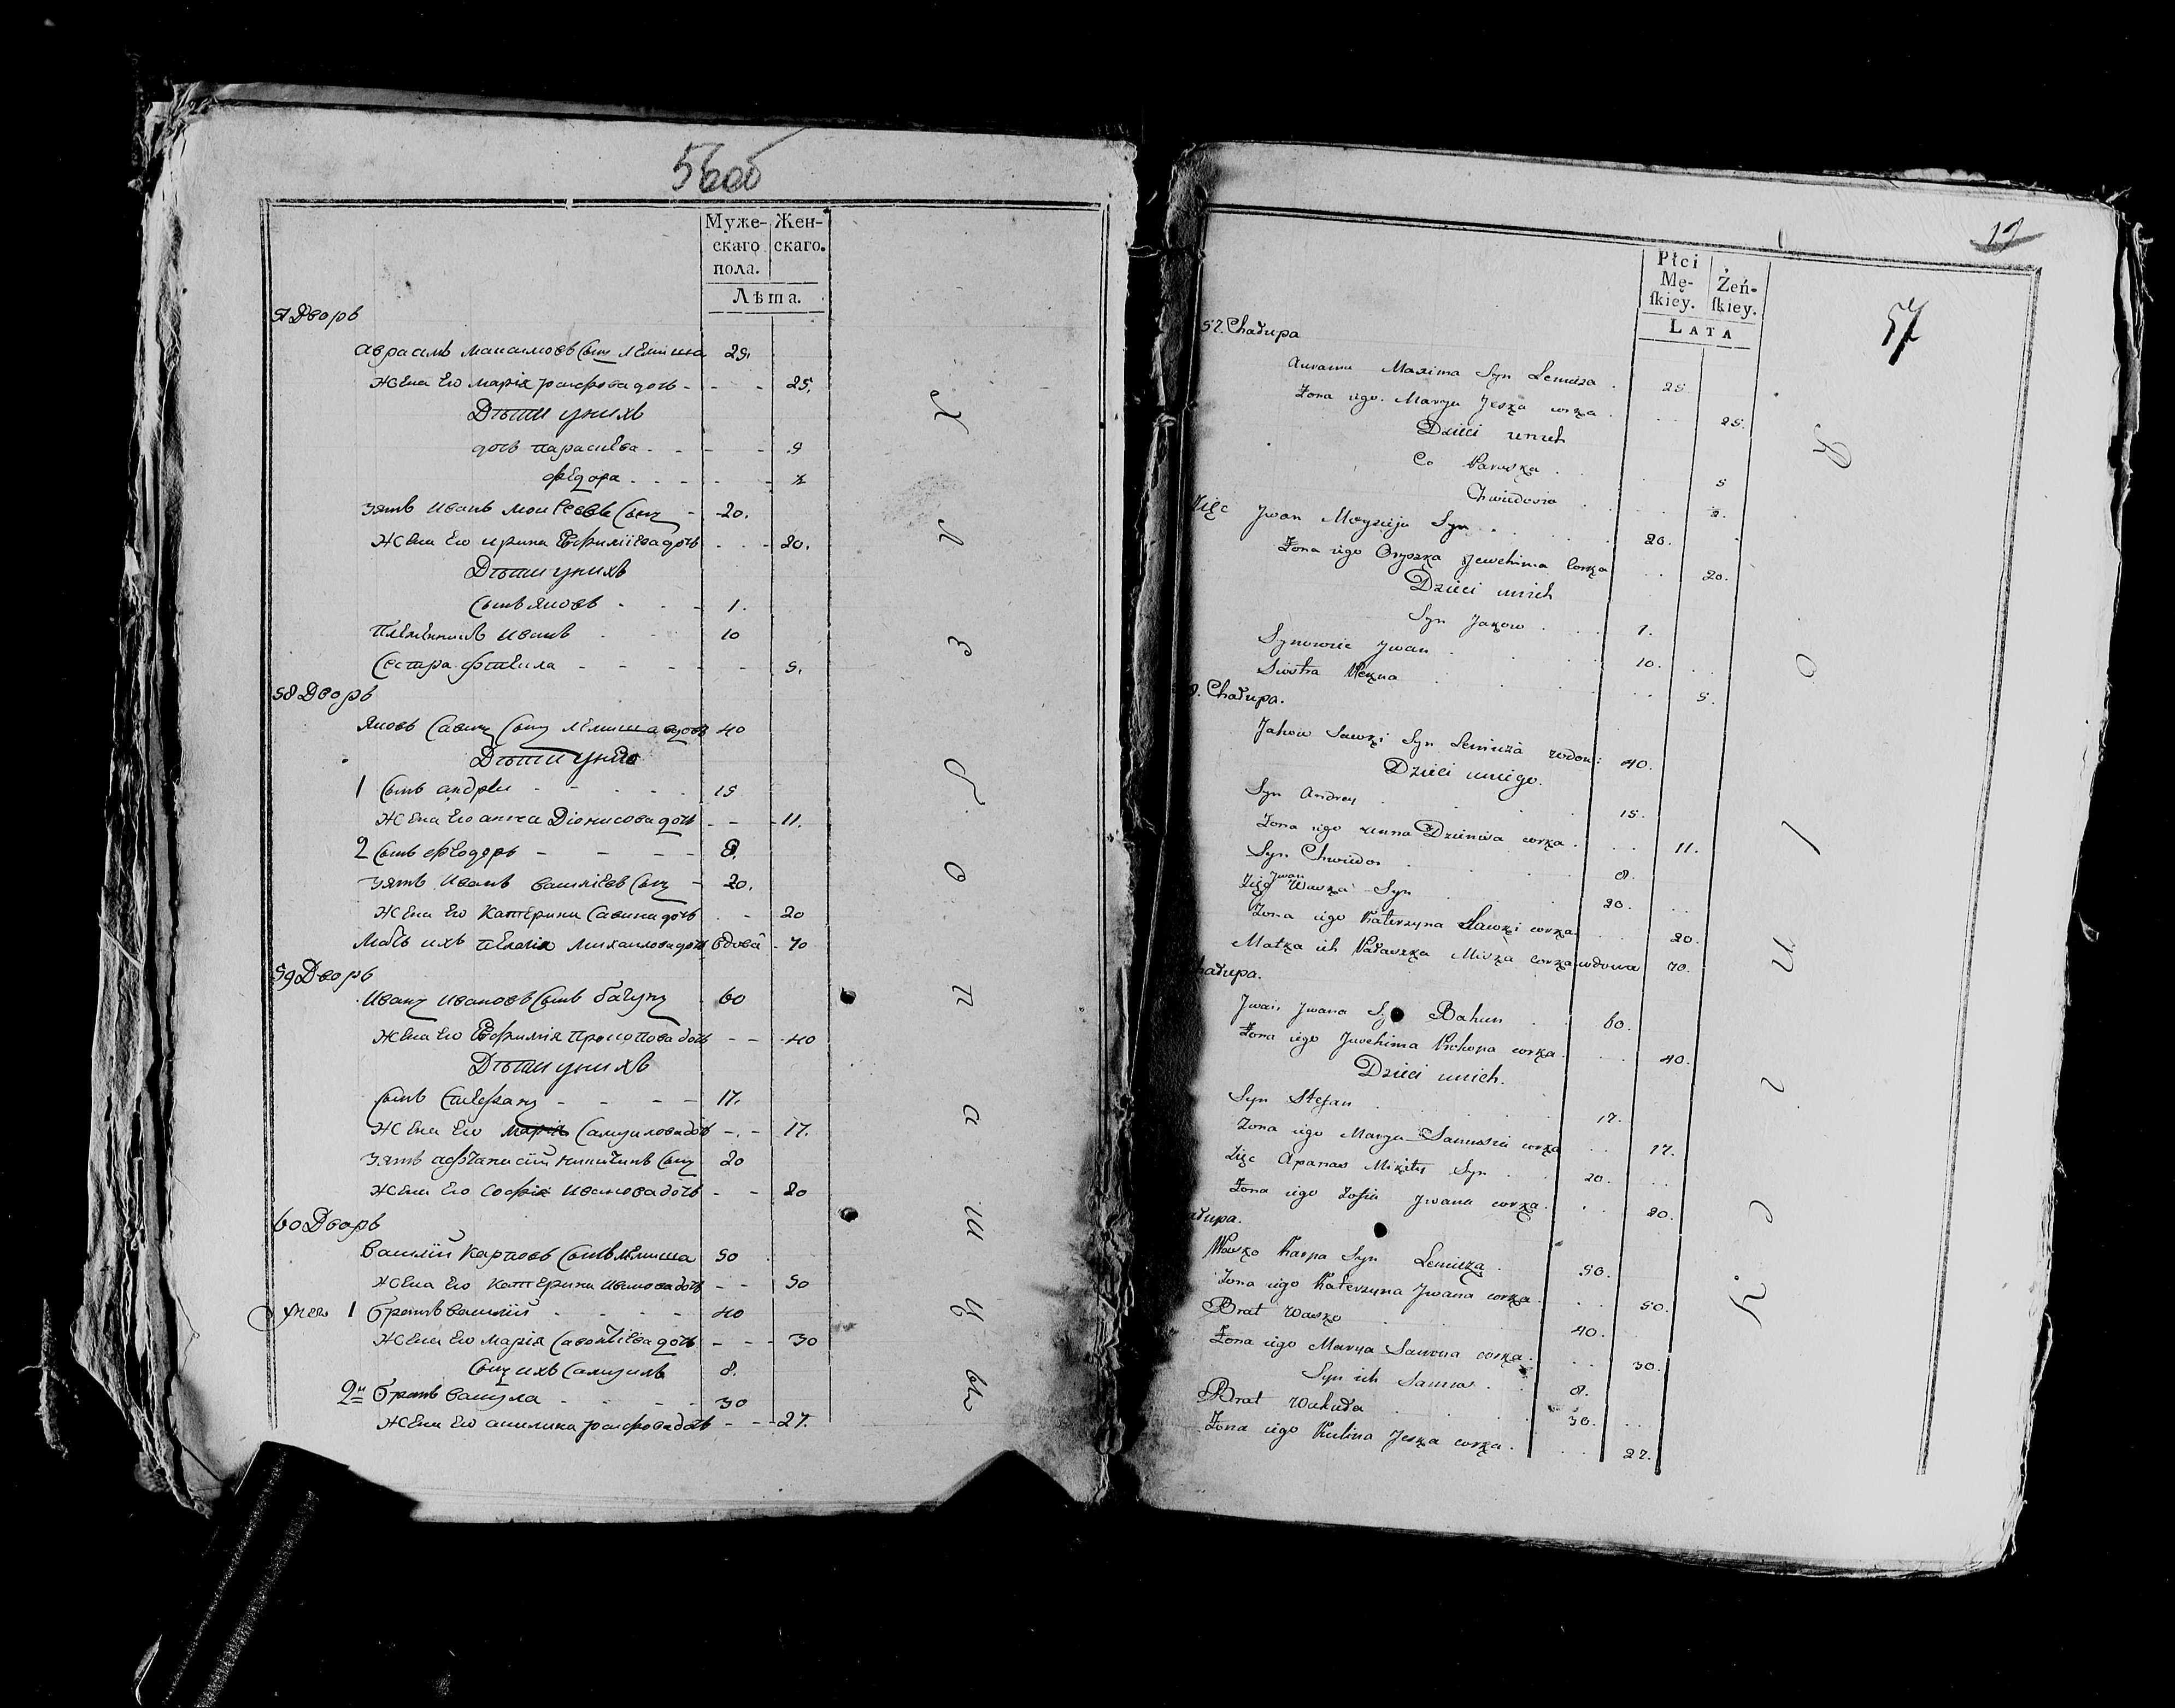 56об
Муже- Жен-
скаго скаго.
пола.
Лѣта.
57 Дворъ
Авраамъ Максимовъ Сынъ Лемеша 25.
жена Его Марія Іосифова дочь - - - 25.
Дѣти у нихъ
дочь Параскева - - - - 5
Федора - - - - - 2
зять Иванъ Моисеевъ Сынъ - 20.
жена Его Ирина Ефиміева дочь - - - 20.
Дѣти у нихъ
Сынъ Яковъ - - - 1.
племенникъ Иванъ - - - 10
Сестра Фекла - - - - - 5.
58 Дворъ
Яковъ Савинъ Сынъ Лемеша вдовъ 40
Дѣти у него
1 Сынъ Андрей - - - - 15
жена Его Анна Діонисова дочь - - - 11.
2 Сынъ Феодоръ - - - - 8.
зять Иванъ Василіевъ Сынъ - 20.
жена Его Катерина Савина дочь - - 20
Мать ихъ Пелагія Михаилова дочь вдова - 70
59 Дворъ
Иванъ Ивановъ Сынъ Багунъ - 60
жена Его Ефимія Прокопова дочь - - 40
Дѣти у нихъ
Сынъ Стефанъ - - - - 17.
жена Его Марія Самуилова дочь - - 17.
зять Афанасій Никитинъ Сынъ 20
жена Его Софія Иванова дочь - - 20
60 Дворъ
Василій Карповъ Сынъ Лемеша 50
жена Его Катерина Иванова дочь - - 50
У него 1 братъ Василій - - - - 40
жена Его Марія Савонтіева дочь - - - 30
Сынъ ихъ Самуилъ 8.
2й братъ Вакула - - - - 30
жена Его Акилина Іосифова дочь - - - 27.
Х л ѣ б о п а ш ц ы
12
57
Płci
Mę- Żeń-
ſkiey. ſkiey.
LATA
57. Chałupa
Auram Maxima Syn Lemisza . 25
Żona iego Marya Jeska corka . . . 25.
Dzieci unich
Co Paraska . . . 5
Chwiedosia . . . 2.
Zięc Jwan Moyzieja Syn . . . 20.
Żona iego Oryszka Jewchima Corka . . 20.
Dzieci unich
Syn Jakow . . . 1.
Synowiec Jwan . . . 10.
Siostra Tekla . . . 5.
8. Chałupa.
Jakow Sawki Syn Lemisza wdowi 40.
Dzieci uniego.
Syn Andrey . . . 15.
Żona iego Anna Dzienisa corka . . . 11.
Syn Chwiedor . . . 8.
Zięc Jwan Waska Syn . . . 20.
Żona iego Katerzyna Sawki corka . . 20.
Matka ich Pałaszka Miska corka wdowa 70.
hałupa.
Jwan Jwana Syn Bahun . . 60.
Żona iego Jewchima Prokopa corka . . . 40.
Dzieci unich.
Syn Stefan . . . 17.
Żona iego Marya Samusia corka . . 17.
Zięc Apanas Mikity Syn . . 20.
Żona iego Zofia Jwana corka . . . 20.
ałupa.
Wasko Karpa Syn Lemisza . 50.
Żona iego Katerzyna Jwana corka . . . 50.
Brat Wasko . . . 40.
Żona iego Marya Sawona corka . . . 30.
Syn ich Samus . . 8.
Brat Wakuła . . . 30.
Żona iego Kulina Jeska corka . . . 27.